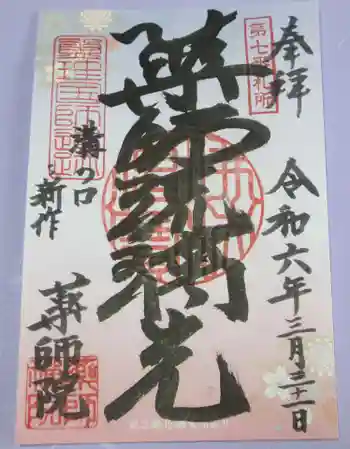 奉拝
第七番札所
令和六年三月三十一日
薬師瑠璃光
溝の口
新作
薬師院